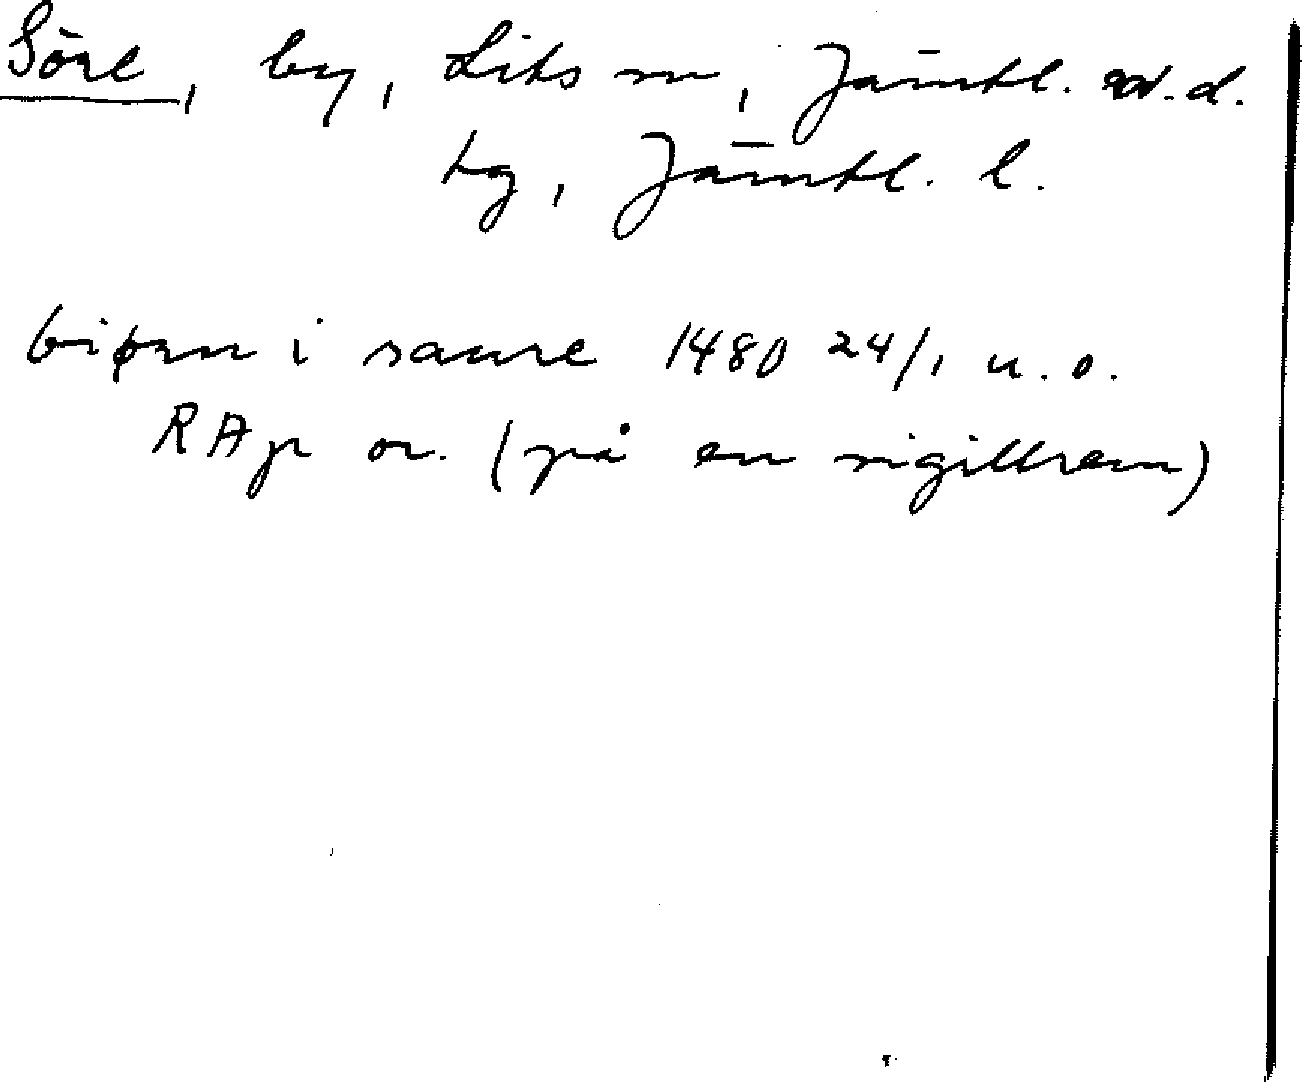 Söre, by, Lits sn, Jämtl. v.d.
tg, Jämtl. l.
i saure 1480 24/1 u.o.
RAp or. (på en sigillrem)